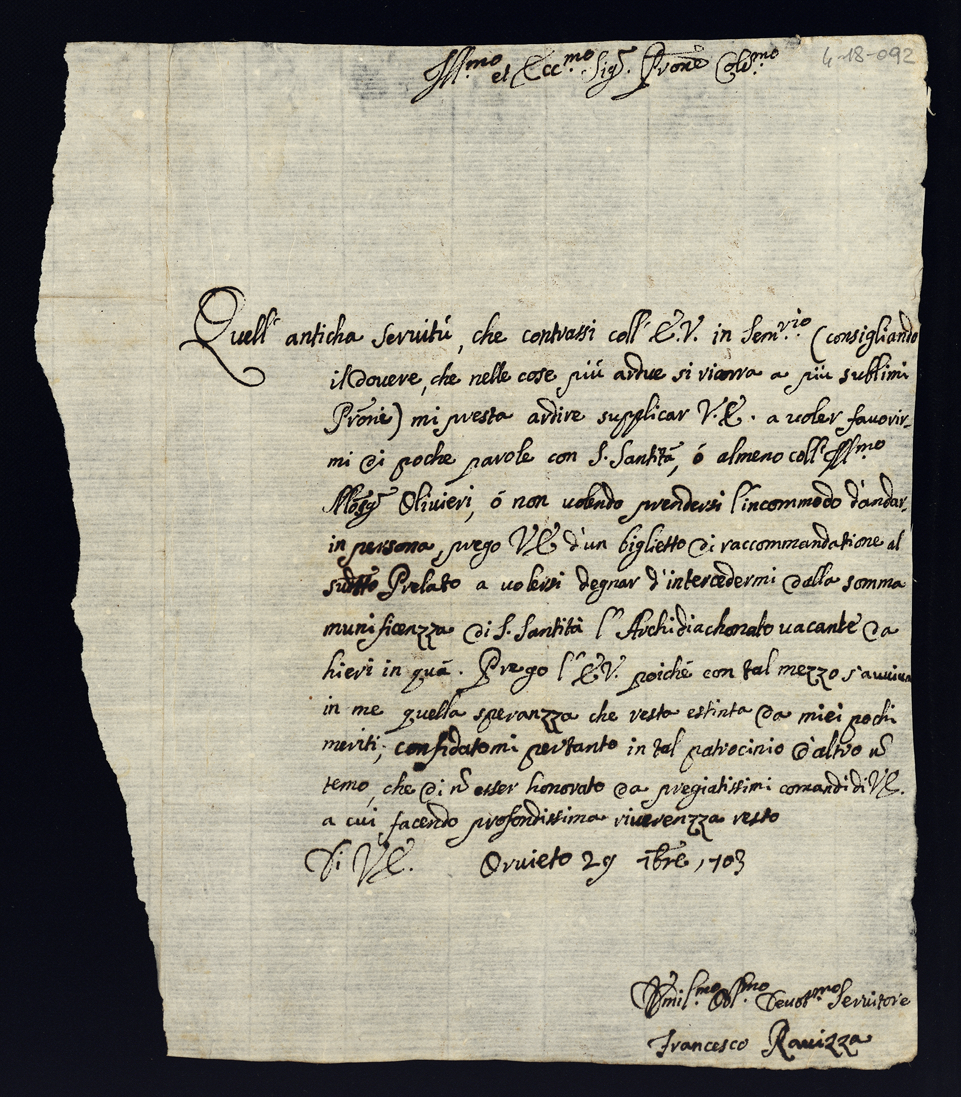 Ill.mo et Ecc.mo Sig.r Prone Col.mo
4-18-092
Quell' anticha servitù, che contrassi coll' E.V. in Sem.rio (consigliando
il dovere, che nelle cose più ardue si ricorra a più sublimi
Prone) mi presta ardire supplicar V.E. a voler favorir-
mi di poche parole con S. Santità, ó almeno coll' Ill.mo
Monsg.r Olivieri, ó non volendo prendersi l'incommodo d'andar,
in persona, prego V.E. d'un biglietto di raccommandatione al
sudtto Prelato a volersi degnar d'intercedermi dalla somma
munificenzza di S. Santità l' Archidiachonato vacante da
hieri in quá. Prego l' E.V. poiché con tal mezzo s'avviva
in me quella speranzza che resta estinta da miei pochi
meriti; confidatomi pertanto in tal patrocinio d'altro ñ
temo, che di ñ esser honorato da pregiatissimi comandi di V.E.
a cui facendo profondissima riverenzza resto
Di V.E. Orvieto 29 7bre 1703
Vmil.mo Obl.mo Devot.mo Servitore
Francesco Ravizza